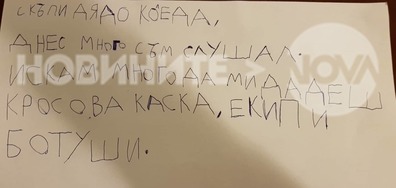 СКЪПИ ДЯДО КОЕДА,
ДНЕС МНОГО СЪМ СЛУШАЛ.
ИСКАМ МНОГО ДА МИ ДАДЕШ
КРОСОВА КАСКА, ЕКИП И
БОТУШИ.
НОВИНИТЕ NOVA